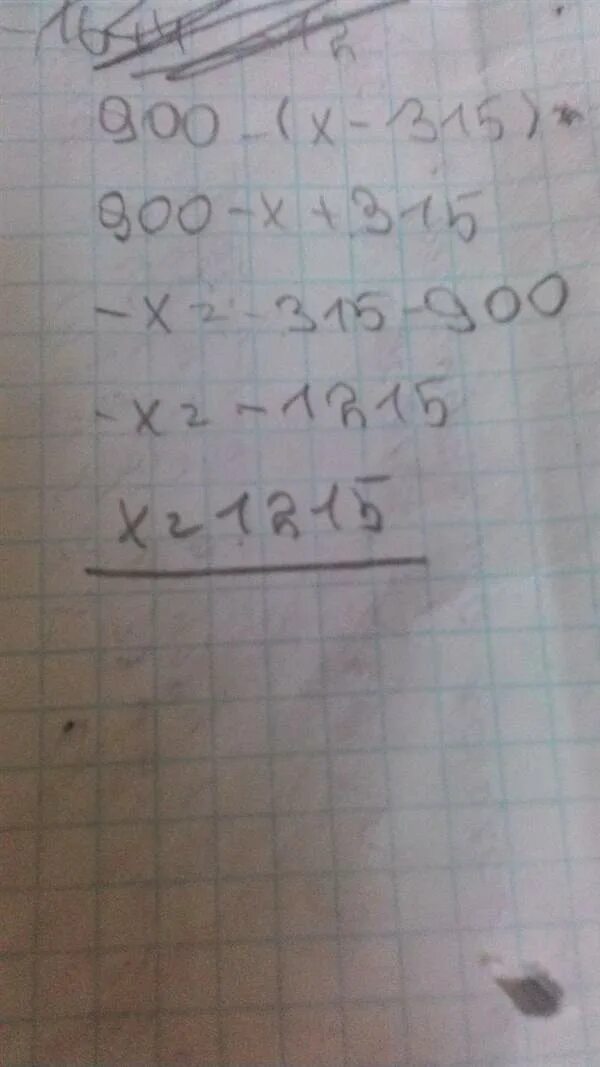 900 - (x - 315)
900 - x + 315
- x = - 315 - 900
- x = - 1215
x = 1215